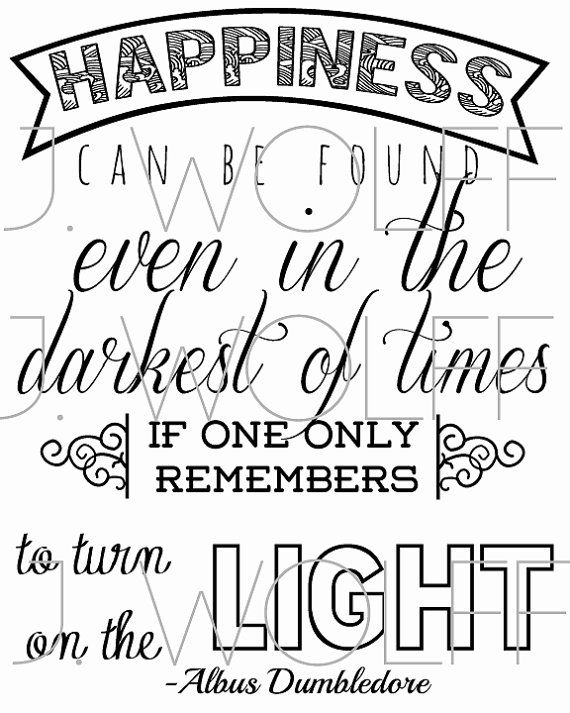 HAPPINESS
CAN BE FOUND
even in the
darkest of times
IF ONE ONLY
REMEMBERS
to turn
on the
LIGHT
-Albus Dumbledore
J. WOLFF
J. WOLFF
J. WOLFF